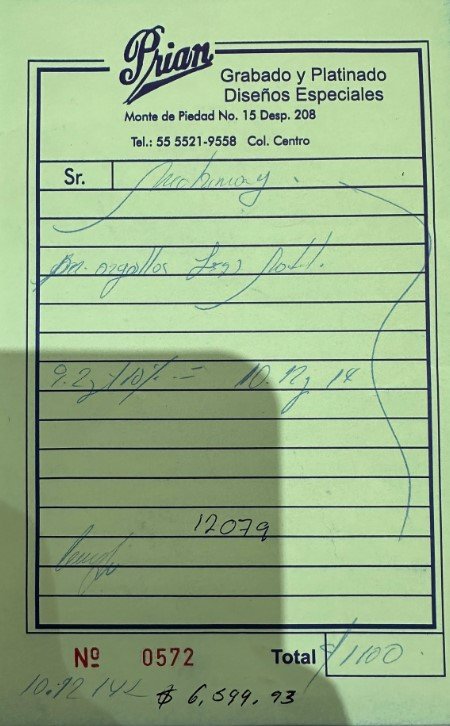 Prian
Grabado y Platinado
Diseños Especiales
Monte de Piedad No. 15 Desp. 208
Tel.: 55 5521-9558 Col. Centro
Sr.
9.2g +10% = 10.12g 14
12079
Nº 0572 Total $1100
10.12 14K $ 6,599.93